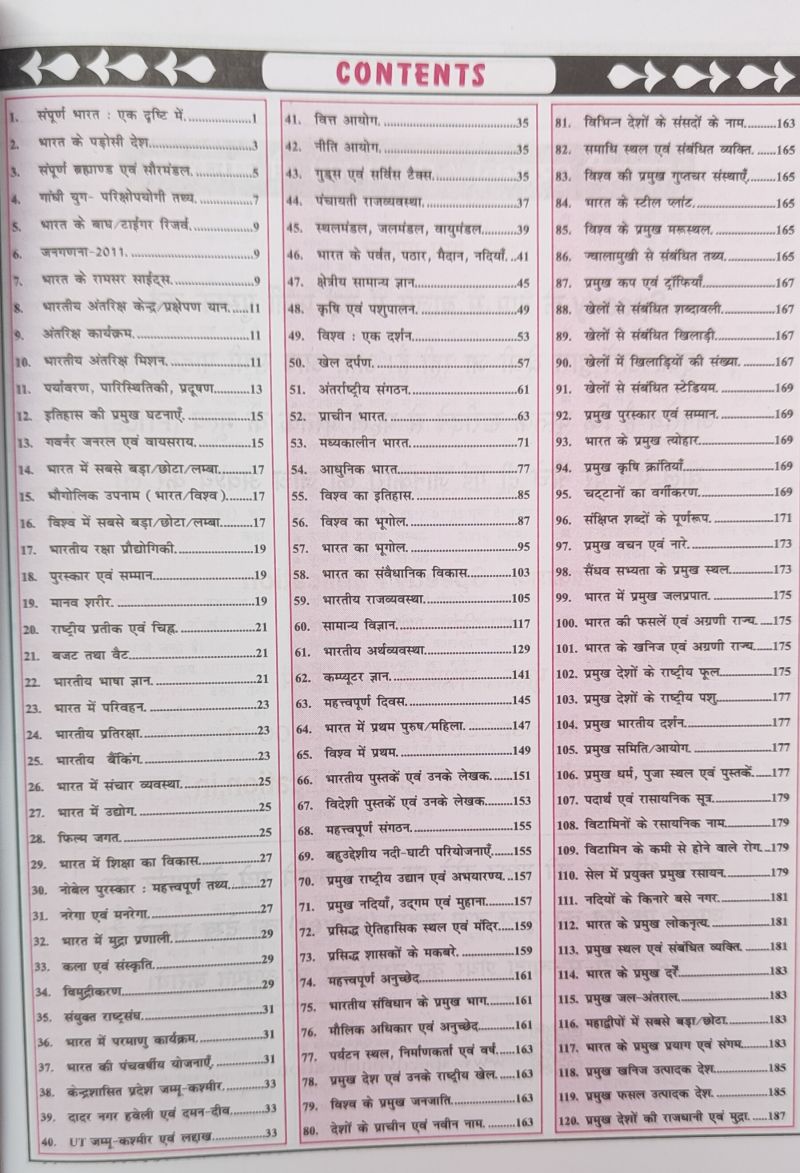 CONTENTS
1. संपूर्ण भारत : एक दृष्टि में.....................1
2. भारत के पड़ोसी देश.....................3
3. संपूर्ण ब्रह्माण्ड एवं सौरमंडल.....................5
4. गांधी युग- परिक्षोपयोगी तथ्य.....................7
5. भारत के बाघ/टाईगर रिजर्व.....................9
6. जनगणना-2011.....................9
7. भारत के रामसर साईट्स.....................9
8. भारतीय अंतरिक्ष केन्द्र/प्रक्षेपण यान.....11
9. अंतरिक्ष कार्यक्रम.....................11
10. भारतीय अंतरिक्ष मिशन.....................11
11. पर्यावरण, पारिस्थितिकी, प्रदूषण............13
12. इतिहास की प्रमुख घटनाएँ.....................15
13. गवर्नर जनरल एवं वायसराय.....................15
14. भारत में सबसे बड़ा/छोटा/लम्बा..........17
15. भौगोलिक उपनाम ( भारत/विश्व ).......17
16. विश्व में सबसे बड़ा/छोटा/लम्बा..........17
17. भारतीय रक्षा प्रौद्योगिकी.....................19
18. पुरस्कार एवं सम्मान.....................19
19. मानव शरीर.....................19
20. राष्ट्रीय प्रतीक एवं चिह्न.....................21
21. बजट तथा वैट.....................21
22. भारतीय भाषा ज्ञान.....................21
23. भारत में परिवहन.....................23
24. भारतीय प्रतिरक्षा.....................23
25. भारतीय बैंकिंग.....................23
26. भारत में संचार व्यवस्था.....................25
27. भारत में उद्योग.....................25
28. फिल्म जगत.....................25
29. भारत में शिक्षा का विकास.....................27
30. नोबेल पुरस्कार : महत्त्वपूर्ण तथ्य.........27
31. नरेगा एवं मनरेगा.....................27
32. भारत में मुद्रा प्रणाली.....................29
33. कला एवं संस्कृति.....................29
34. विमुद्रीकरण.....................29
35. संयुक्त राष्ट्रसंघ.....................31
36. भारत में परमाणु कार्यक्रम.....................31
37. भारत की पंचवर्षीय योजनाएँ.....................31
38. केन्द्रशासित प्रदेश जम्मू-कश्मीर............33
39. दादर नगर हवेली एवं दमन-दीव............33
40. UT जम्मू-कश्मीर एवं लद्दाख.....................33
41. वित्त आयोग.....................35
42. नीति आयोग.....................35
43. गुड्स एवं सर्विस टैक्स.....................35
44. पंचायती राजव्यवस्था.....................37
45. स्थलमंडल, जलमंडल, वायुमंडल..........39
46. भारत के पर्वत, पठार, मैदान, नदियाँ...41
47. क्षेत्रीय सामान्य ज्ञान.....................45
48. कृषि एवं पशुपालन.....................49
49. विश्व : एक दर्शन.....................53
50. खेल दर्पण.....................57
51. अंतर्राष्ट्रीय संगठन.....................61
52. प्राचीन भारत.....................63
53. मध्यकालीन भारत.....................71
54. आधुनिक भारत.....................77
55. विश्व का इतिहास.....................85
56. विश्व का भूगोल.....................87
57. भारत का भूगोल.....................95
58. भारत का संवैधानिक विकास.............103
59. भारतीय राजव्यवस्था.....................105
60. सामान्य विज्ञान.....................117
61. भारतीय अर्थव्यवस्था.....................129
62. कम्प्यूटर ज्ञान.....................141
63. महत्त्वपूर्ण दिवस.....................145
64. भारत में प्रथम पुरुष/महिला.............147
65. विश्व में प्रथम.....................149
66. भारतीय पुस्तकें एवं उनके लेखक.......151
67. विदेशी पुस्तकें एवं उनके लेखक........153
68. महत्त्वपूर्ण संगठन.....................155
69. बहुउद्देशीय नदी-घाटी परियोजनाएँ......155
70. प्रमुख राष्ट्रीय उद्यान एवं अभयारण्य...157
71. प्रमुख नदियाँ, उद्गम एवं मुहाना........157
72. प्रसिद्ध ऐतिहासिक स्थल एवं मंदिर....159
73. प्रसिद्ध शासकों के मकबरे.............159
74. महत्त्वपूर्ण अनुच्छेद.....................161
75. भारतीय संविधान के प्रमुख भाग........161
76. मौलिक अधिकार एवं अनुच्छेद..........161
77. पर्यटन स्थल, निर्माणकर्ता एवं वर्ष.....163
78. प्रमुख देश एवं उनके राष्ट्रीय खेल.....163
79. विश्व के प्रमुख जनजाति.....................163
80. देशों के प्राचीन एवं नवीन नाम..........163
81. विभिन्न देशों के संसदों के नाम.........163
82. समाधि स्थल एवं संबंधित व्यक्ति......165
83. विश्व की प्रमुख गुप्तचर संस्थाएँ.......165
84. भारत के स्टील प्लांट.....................165
85. विश्व के प्रमुख मरूस्थल.....................165
86. ज्वालामुखी से संबंधित तथ्य.............165
87. प्रमुख कप एवं ट्रॉफियाँ.....................167
88. खेलों से संबंधित शब्दावली.............167
89. खेलों से संबंधित खिलाड़ी.............167
90. खेलों में खिलाड़ियों की संख्या..........167
91. खेलों से संबंधित स्टेडियम.............169
92. प्रमुख पुरस्कार एवं सम्मान.............169
93. भारत के प्रमुख त्योहार.....................169
94. प्रमुख कृषि क्रांतियाँ.....................169
95. चट्टानों का वर्गीकरण.....................169
96. संक्षिप्त शब्दों के पूर्णरूप.............171
97. प्रमुख वचन एवं नारे.....................173
98. सैंधव सभ्यता के प्रमुख स्थल..........173
99. भारत में प्रमुख जलप्रपात.............175
100. भारत की फसलें एवं अग्रणी राज्य.....175
101. भारत के खनिज एवं अग्रणी राज्य.....175
102. प्रमुख देशों के राष्ट्रीय फूल............175
103. प्रमुख देशों के राष्ट्रीय पशु............177
104. प्रमुख भारतीय दर्शन.....................177
105. प्रमुख समिति/आयोग.....................177
106. प्रमुख धर्म, पुजा स्थल एवं पुस्तकें....177
107. पदार्थ एवं रासायनिक सूत्र.............179
108. विटामिनों के रसायनिक नाम............179
109. विटामिन के कमी से होने वाले रोग...179
110. सेल में प्रयुक्त प्रमुख रसायन..........179
111. नदियों के किनारे बसे नगर.............181
112. भारत के प्रमुख लोकनृत्य.............181
113. प्रमुख स्थल एवं संबंधित व्यक्ति......181
114. भारत के प्रमुख दर्रें.....................183
115. प्रमुख जल-अंतराल.....................183
116. महाद्वीपों में सबसे बड़ा/छोटा..........183
117. भारत के प्रमुख प्रयाग एवं संगम......183
118. प्रमुख खनिज उत्पादक देश.............185
119. प्रमुख फसल उत्पादक देश.............185
120. प्रमुख देशों की राजधानी एवं मुद्रा.....187